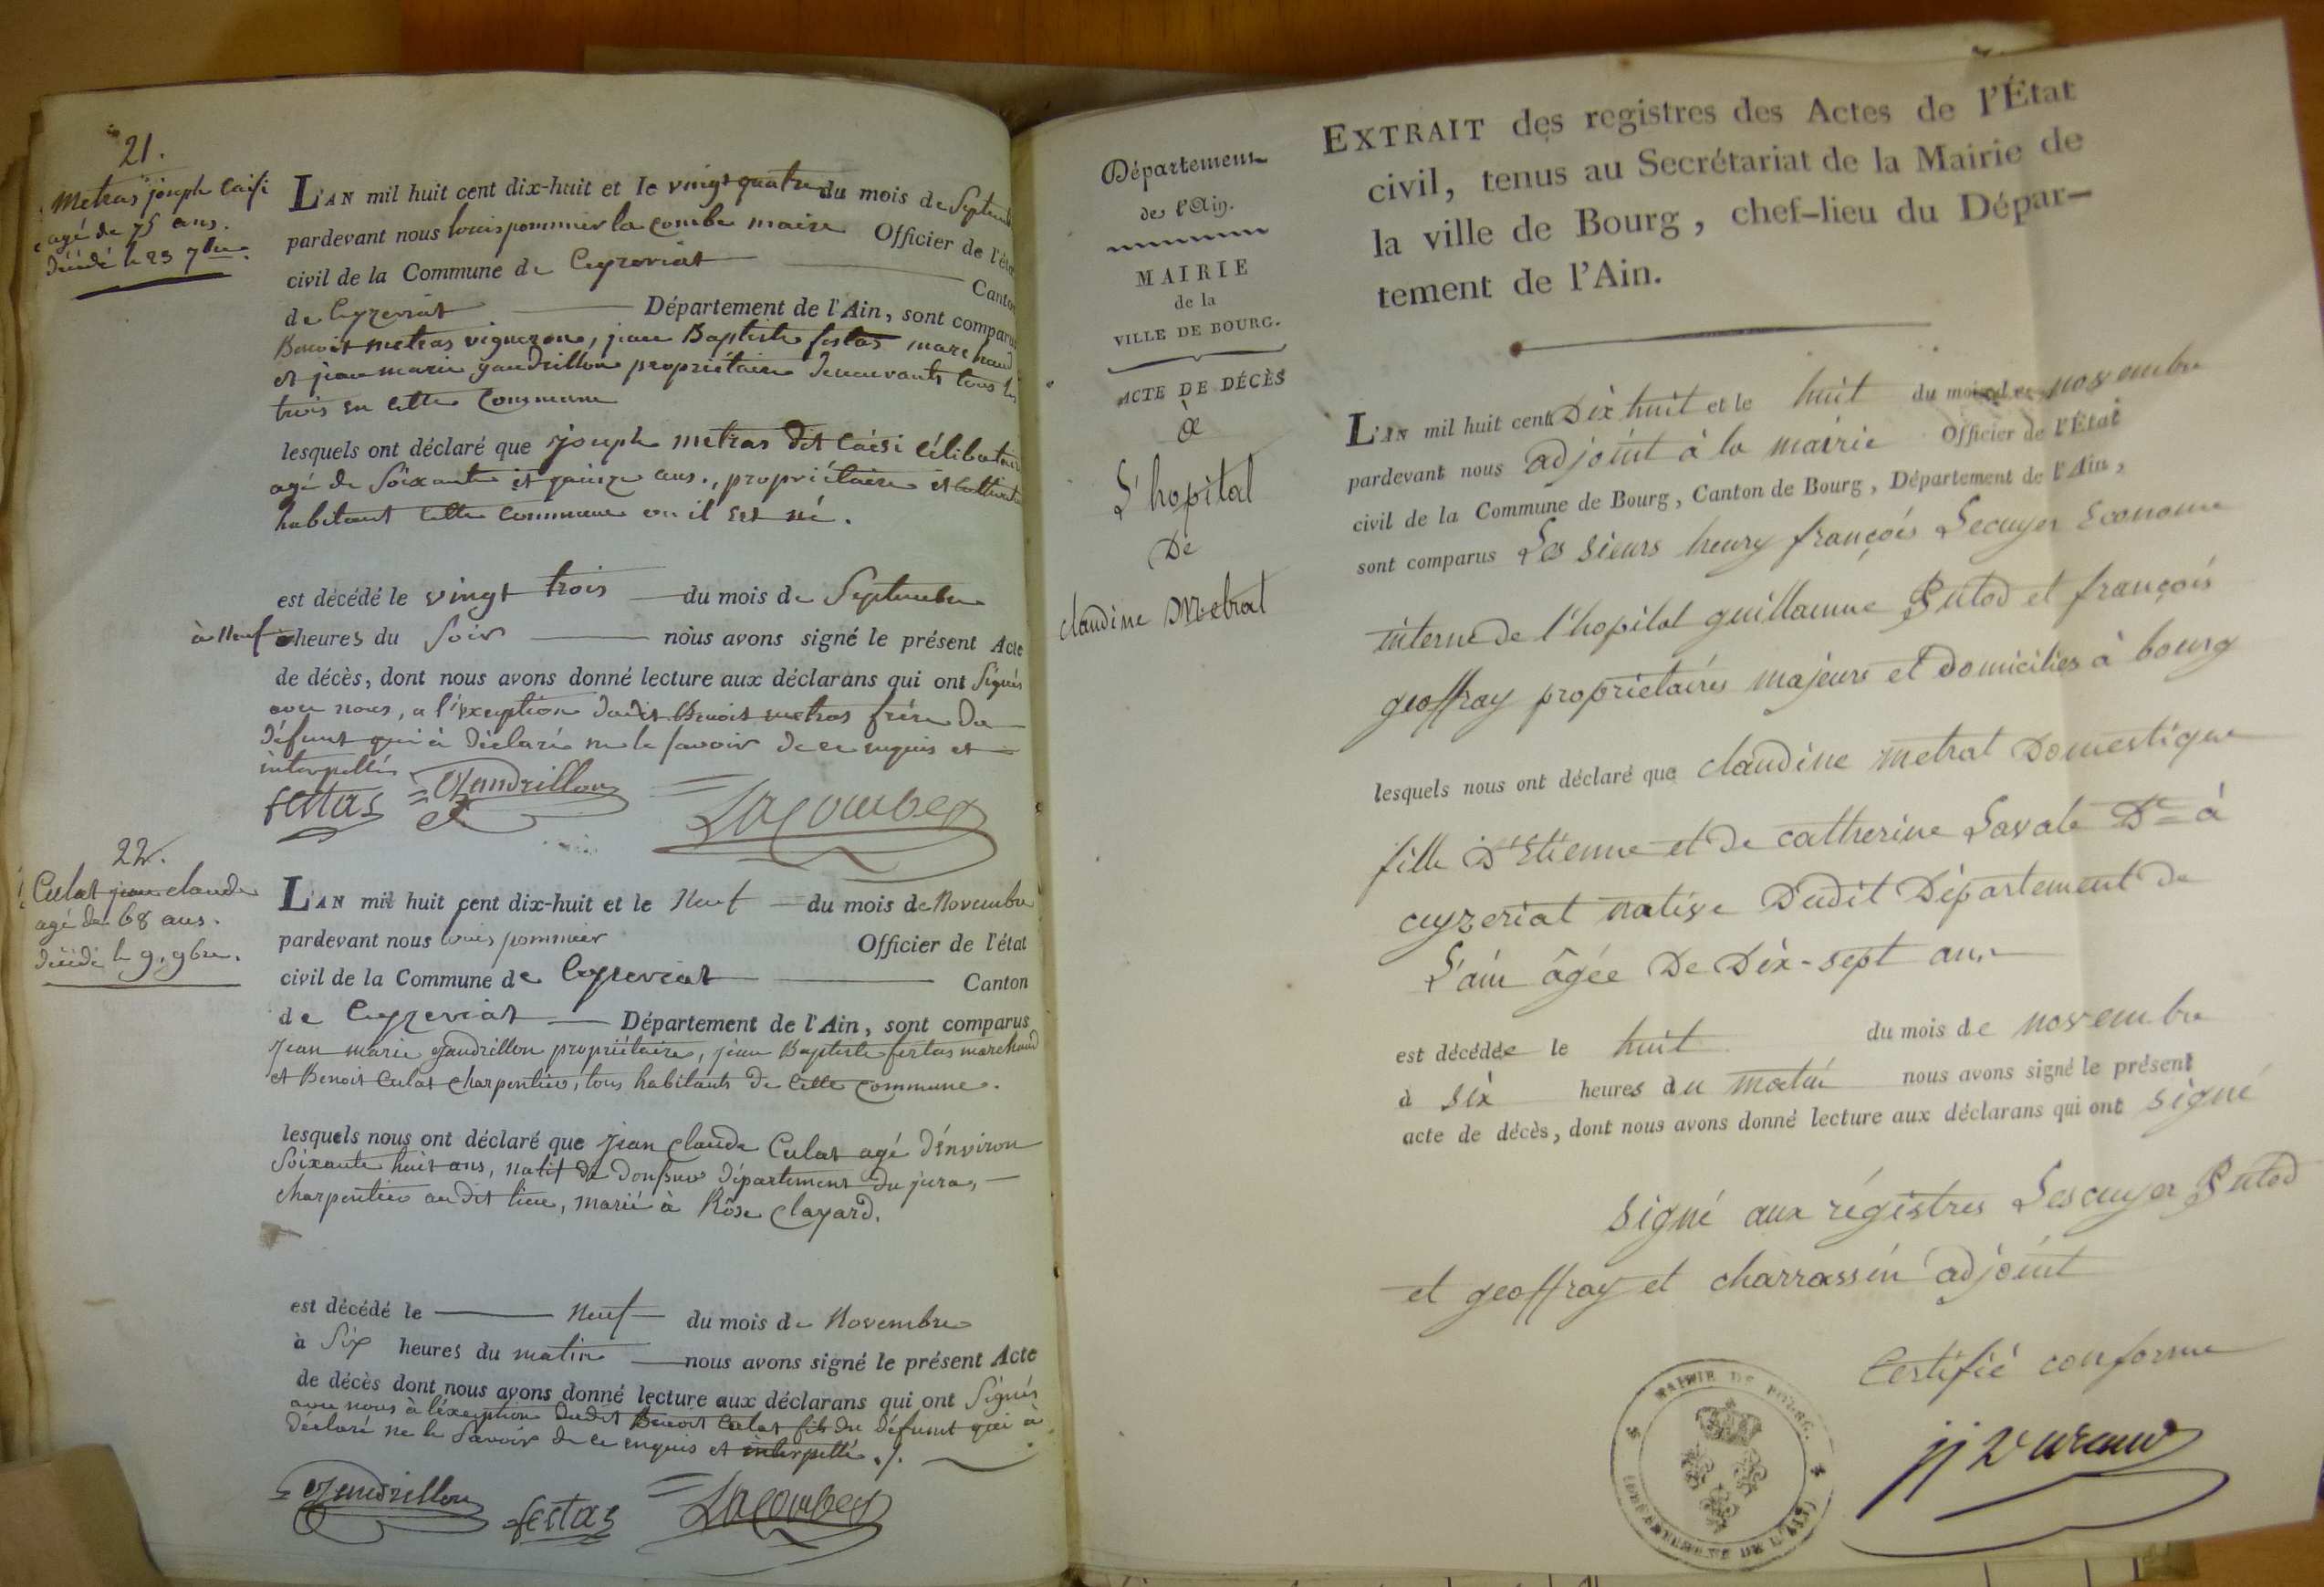 21.
Metras joseph Caisi
agé de 75 ans.
décédé le 23 7bre.
L'AN mil huit cent dix-huit et le vingt quatre du mois de Septembre
pardevant nous louis pommier la combe maire Officier de l'état
civil de la Commune de Ceyzeriat Canton
de Ceyzeriat Département de l'Ain, sont comparus
Benoit metras vigneron, jean Baptiste festas marchand
et jean marie gandrillon propriétaire demeurants tous les
trois en cette Commune
lesquels ont déclaré que joseph metras dit Caisi Célibataire
agé de Soixante et quinze ans., propriétaire et cultivateur
habitant cette commune ou il est né.
est décédé le vingt trois du mois de Septembre
à Neuf heures du Soir nous avons signé le présent Acte
de décès, dont nous avons donné lecture aux déclarans qui ont Signés
avec nous, a l'exception dudit Benoit metras frère du
défunt qui à déclaré ne le savoir de ce enquis et
interpellé
festas Gandrillon Lacombe
22.
Culat jean claude
agé de 68 ans.
décédé le 9. 9bre.
L'AN mil huit cent dix-huit et le Neuf du mois de Novembre
pardevant nous louis pommier Officier de l'état
civil de la Commune de Ceyzeriat Canton
de Ceyzeriat Département de l'Ain, sont comparus
Jean marie gandrillon propriétaire, jean Baptiste festas marchand
et Benoit Culat charpentier, tous habitants de Cette commune.
lesquels nous ont déclaré que Jean Claude Culat agé d'environ
Soixante huit ans, natif de département du jura,
charpentier au dit lieu, marié à Rôse Clayard.
est décédé le Neuf du mois de Novembre
à Six heures du matin nous avons signé le présent Acte
de décès dont nous avons donné lecture aux déclarans qui ont Signés
avec nous à l'exception dudit Benoit Culat fils du défunt qui à
déclaré ne le Savoir de ce enquis et interpellé ./.
Gandrillon festas Lacombe
Département
de l'Ain.
MAIRIE
de la
VILLE DE BOURG.
ACTE DE DÉCÈS
à
L'hopital
De
claudine Metrat
EXTRAIT des registres des Actes de l'État
civil, tenus au Secrétariat de la Mairie de
la ville de Bourg, chef-lieu du Dépar-
tement de l'Ain.
L'AN mil huit cent Dix huit et le huit du mois de novembre
pardevant nous adjoint à la mairie Officier de l'État
civil de la Commune de Bourg, Canton de Bourg, Département de l'Ain,
sont comparus Les sieurs henry françois Lecuyer Econome
interne de l'hopital guillaume Putod et françois
geoffray propriétaires majeurs et domiciliés à bourg
lesquels nous ont déclaré que claudine metrat Domestique
fille D'Etienne et de catherine Lavate Dte à
ceyzeriat native Dudit Département de
L'ain âgée De Dix-sept ans
est décédée le huit du mois de novembre
à six heures du matin nous avons signé le présent
acte de décès, dont nous avons donné lecture aux déclarans qui ont signé
signé aux régistres Lescuyer Putod
et geoffray et charrassin adjoint
Certifié conforme
MAIRIE DE BOURG.
(DÉPARTEMENT DE L'AIN)